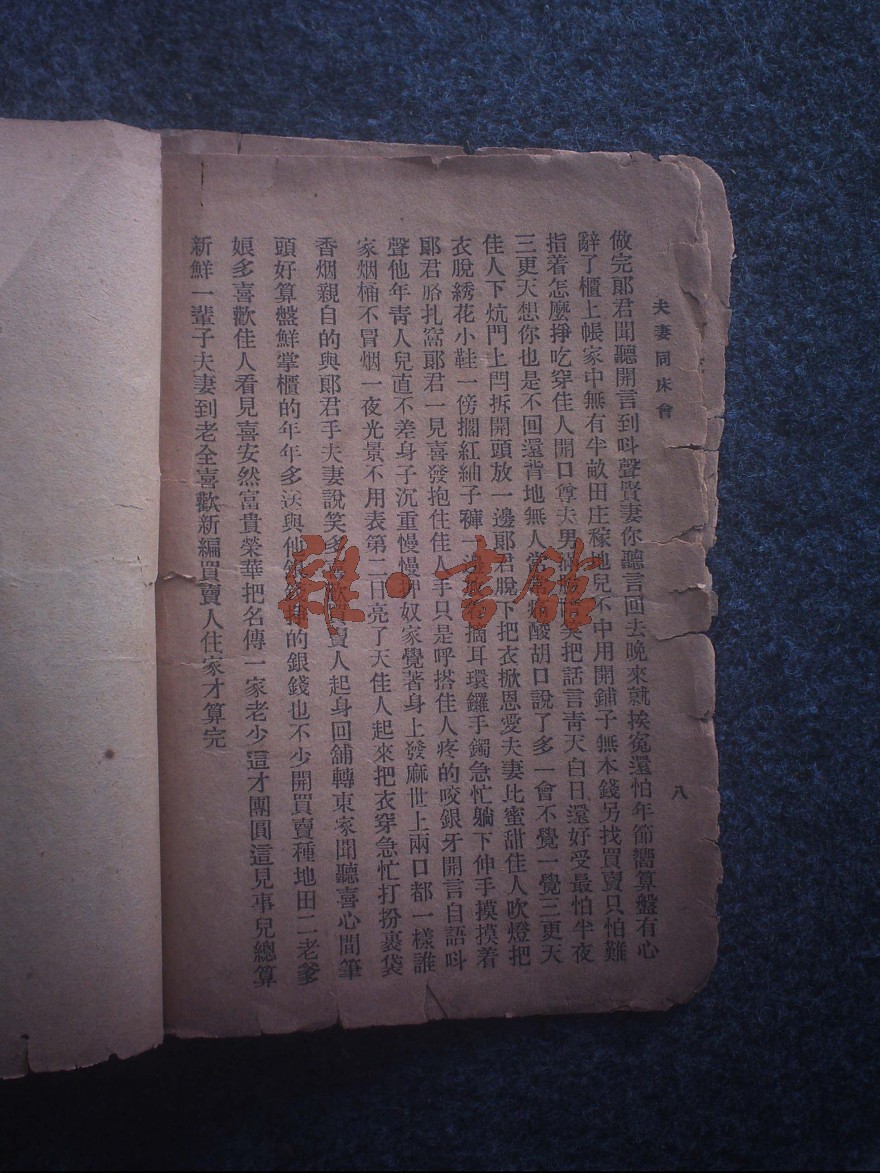 夫妻同床會
八
做完郎君聞聽開言到呌聲賢妻你聽言回去晚來就挨寃還怕年節嚮算盤有心
辭了櫃上帳家中無有半畝田庄稼地兒不中用開鋪子無本錢另找買賣只怕難
指着怎麽掙吃穿佳人開口尊夫男笑把話言靑天白日還好受最怕半夜
三更天想你也是不回還背地無人酸胡口說了多一會不覺一覺三更天
佳人下炕門上閂拆開頭放一邊郎君脫下把衣掀恩愛夫妻比蜜甜佳人吹燈把
衣脫綉花小鞋一傍擱紅紬子褲一摘耳環鑼手鐲急忙躺下伸手摸摸着
郎君胳扎窩郎君一見喜發抱住佳人手只是呼搭佳人疼的咬銀牙開言自語呌
聲他年靑人兒直不差身子沉重慢慢押奴家覺著身上發麻世上兩口都一樣誰
家烟桶不冒烟一夜光景不用表第二日亮了天佳人起來把衣穿急忙打扮裹袋
香烟親自的與郎君手夫妻說笑多賣人起身回舖轉東家聞聽喜心間筆
頭好算盤鮮掌櫃的年年多送與他的銀錢也不少開買賣種地田二老爹
娘多喜歡佳人看見喜安然富貴榮華把名傳一家老少這才團圓這見事兒總算
新鮮一輩子夫妻到老全喜歡新編買賣人住家才算完
雜·書館